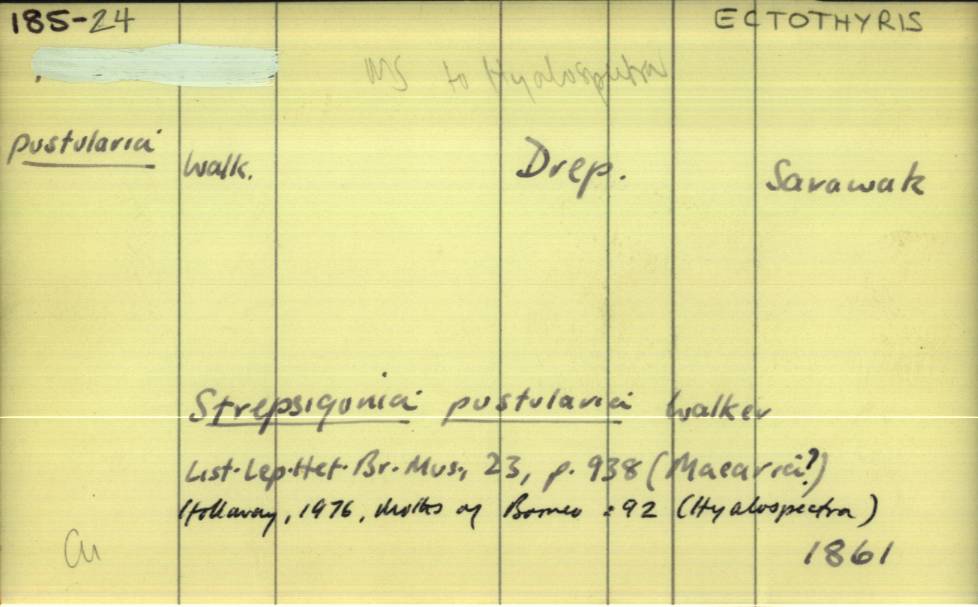 185-24 ECTOTHYRIS
MS to Hyalospectra
pustularia Walk. Drep. Sarawak
Strepsigonia pustularia Walker
List. Lep. Het. Br. Mus., 23, p. 938 (Macaria?)
Holloway, 1976, Moths of Borneo : 92 (Hyalospectra)
1861